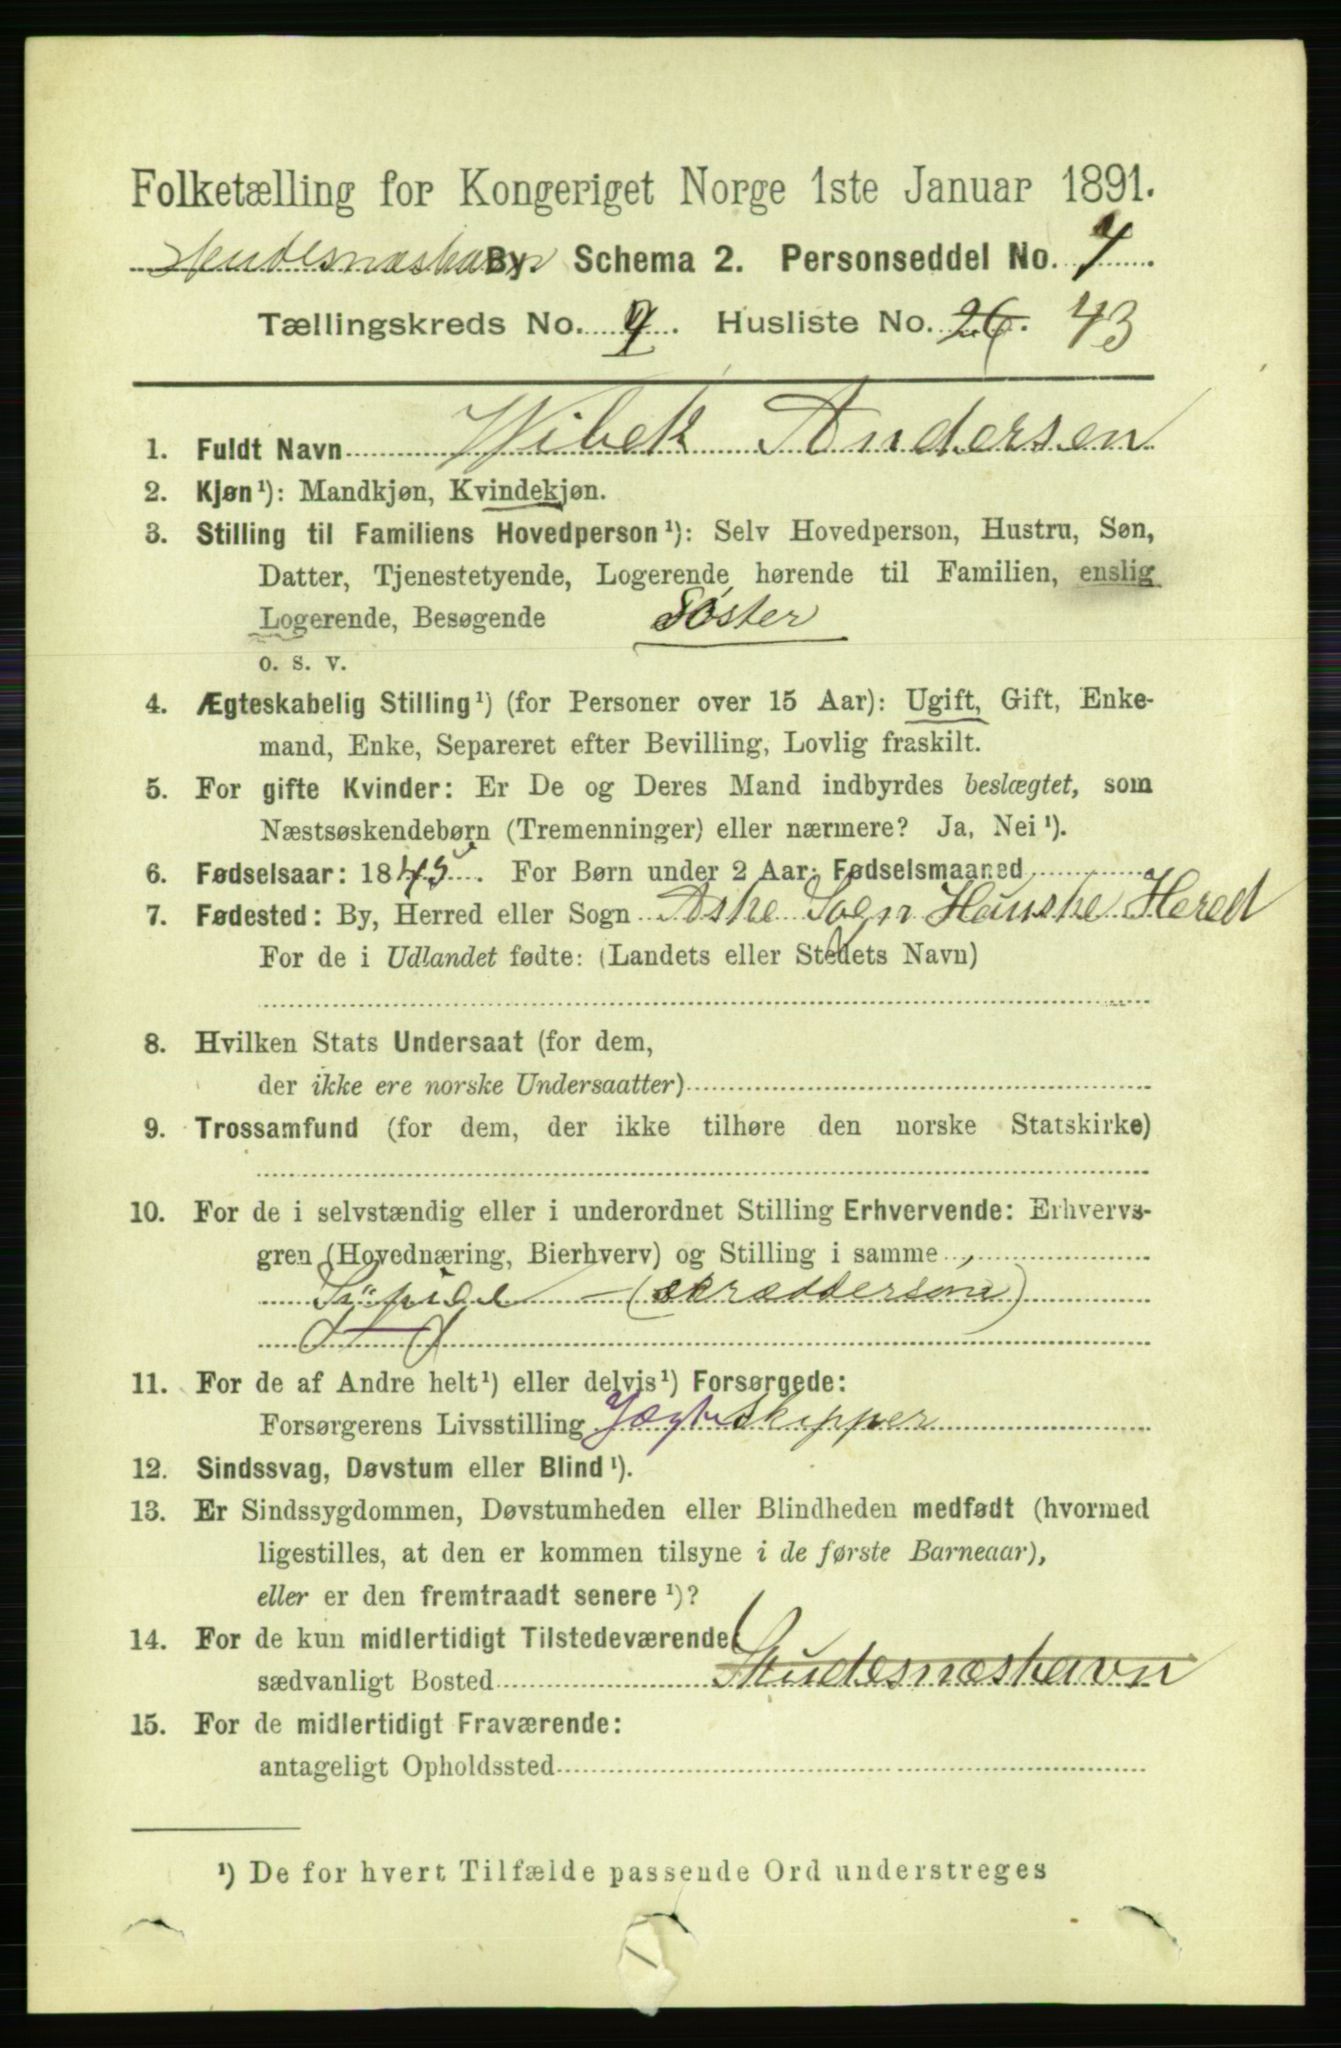 Folketælling for Kongeriget Norge 1ste Januar 1891.
Skudesnæshavn By. Schema 2. Personseddel No. 7
Tællingskreds No. Husliste No. 26. 43
1. Fuldt Navn Wibek Andersen
2. Kjøn¹): Mandkjøn, Kvindekjøn.
3. Stilling til Familiens Hovedperson¹): Selv Hovedperson, Hustru, Søn,
Datter, Tjenestetyende, Logerende hørende til Familien, enslig
Logerende, Besøgende Søster
o. s. v.
4. Ægteskabelig Stilling¹) (for Personer over 15 Aar): Ugift, Gift, Enke-
mand, Enke, Separeret efter Bevilling, Lovlig fraskilt.
5. For gifte Kvinder: Er De og Deres Mand indbyrdes beslægtet, som
Næstsøskendebørn (Tremenninger) eller nærmere? Ja, Nei¹).
6. Fødselsaar: 1845. For Børn under 2 Aar: Fødselsmaaned
7. Fødested: By, Herred eller Sogn Aske Sogn Hauske Hered
For de i Udlandet fødte: (Landets eller Stedets Navn)
8. Hvilken Stats Undersaat (for dem,
der ikke ere norske Undersaatter)
9. Trossamfund (for dem, der ikke tilhøre den norske Statskirke)
10. For de i selvstændig eller i underordnet Stilling Erhvervende: Erhvervs-
gren (Hovednæring, Bierhverv) og Stilling i samme
Sypige (skræddersøm)
11. For de af Andre helt¹) eller delvis¹) Forsørgede:
Forsørgerens Livsstilling Jægtskipper
12. Sindssvag, Døvstum eller Blind¹).
13. Er Sindssygdommen, Døvstumheden eller Blindheden medfødt (hvormed
ligestilles, at den er kommen tilsyne i de første Barneaar),
eller er den fremtraadt senere¹)?
14. For de kun midlertidigt Tilstedeværende:
sædvanligt Bosted Skudesnæshavn
15. For de midlertidigt Fraværende:
antageligt Opholdssted
¹) De for hvert Tilfælde passende Ord understreges